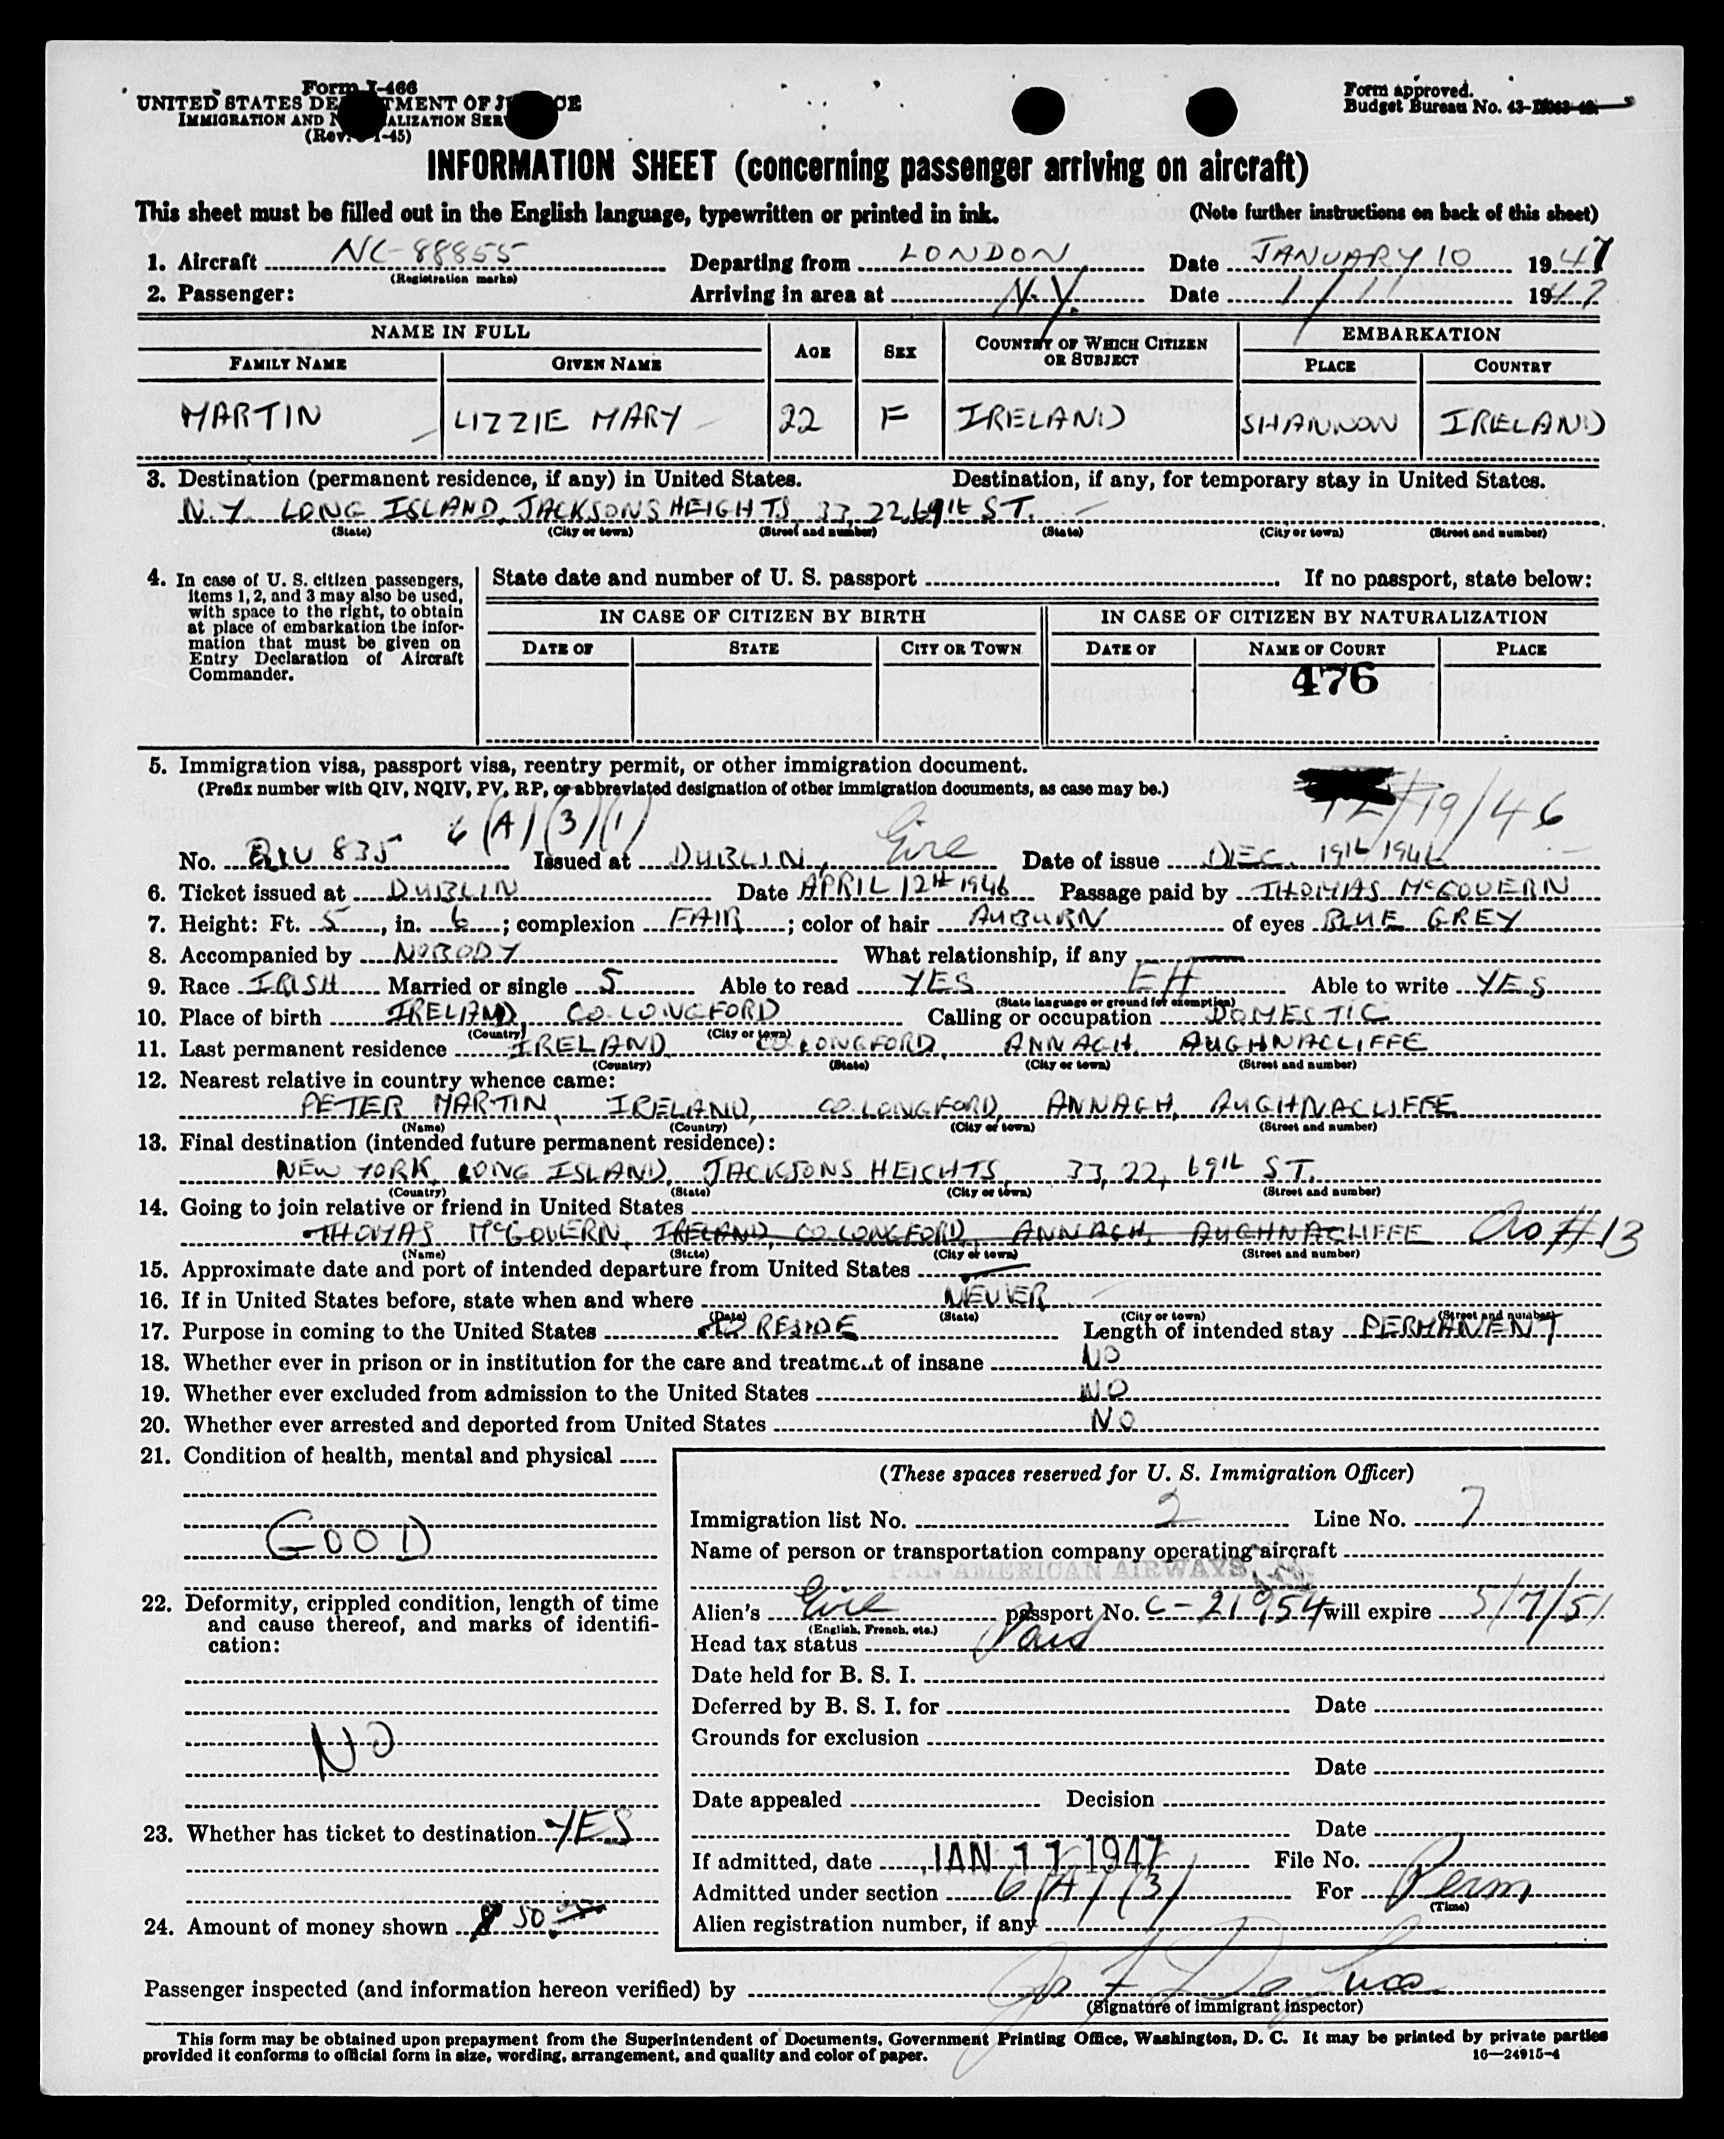 Form I-466
UNITED STATES DEPARTMENT OF JUSTICE
IMMIGRATION AND NATURALIZATION SERVICE
(Rev. -1-45)
Form approved.
Budget Bureau No. 43-
INFORMATION SHEET (concerning passenger arriving on aircraft)
This sheet must be filled out in the English language, typewritten or printed in ink. (Note further instructions on back of this sheet)
1. Aircraft NC-88855 Departing from LONDON Date JANUARY 10 1947
(Registration marks)
2. Passenger: Arriving in area at N.Y. Date 1/11 1947
NAME IN FULL AGE SEX COUNTRY OF WHICH CITIZEN OR SUBJECT EMBARKATION
FAMILY NAME GIVEN NAME PLACE COUNTRY
MARTIN LIZZIE MARY 22 F IRELAND SHANNON IRELAND
3. Destination (permanent residence, if any) in United States. Destination, if any, for temporary stay in United States.
N.Y. LONG ISLAND, JACKSONS HEIGHTS 33, 22, 69th ST.
(State) (City or town) (Street and number) (State) (City or town) (Street and number)
4. In case of U. S. citizen passengers,
items 1, 2, and 3 may also be used,
with space to the right, to obtain
at place of embarkation the infor-
mation that must be given on
Entry Declaration of Aircraft
Commander.
State date and number of U. S. passport If no passport, state below:
IN CASE OF CITIZEN BY BIRTH IN CASE OF CITIZEN BY NATURALIZATION
DATE OF STATE CITY OR TOWN DATE OF NAME OF COURT PLACE
476
5. Immigration visa, passport visa, reentry permit, or other immigration document.
(Prefix number with QIV, NQIV, PV, RP, or abbreviated designation of other immigration documents, as case may be.)
6(A)(3)(1) 12/19/46
No. QIV 835 Issued at DUBLIN, Eire Date of issue DEC. 19th 1946
6. Ticket issued at DUBLIN Date APRIL 12th 1946 Passage paid by THOMAS McGOVERN
7. Height: Ft. 5, in. 6; complexion FAIR; color of hair AUBURN of eyes BLUE GREY
8. Accompanied by NOBODY What relationship, if any
9. Race IRISH Married or single S Able to read YES EH Able to write YES
(State language or ground for exemption)
10. Place of birth IRELAND, CO. LONGFORD Calling or occupation DOMESTIC
(Country) (City or town)
11. Last permanent residence IRELAND CO LONGFORD, ANNAGH, AUGHNACLIFFE
(Country) (State) (City or town) (Street and number)
12. Nearest relative in country whence came:
PETER MARTIN, IRELAND, CO. LONGFORD, ANNAGH, AUGHNACLIFFE
(Name) (Country) (City or town) (Street and number)
13. Final destination (intended future permanent residence):
NEW YORK, LONG ISLAND, JACKSONS HEIGHTS, 33, 22, 69th ST.
(Country) (State) (City or town) (Street and number)
14. Going to join relative or friend in United States
THOMAS McGOVERN, IRELAND, CO LONGFORD, ANNAGH, AUGHNACLIFFE As #13
(Name) (State) (City or town) (Street and number)
15. Approximate date and port of intended departure from United States
16. If in United States before, state when and where NEVER
(Date) (State) (City or town) (Street and number)
17. Purpose in coming to the United States TO RESIDE Length of intended stay PERMANENT
18. Whether ever in prison or in institution for the care and treatment of insane NO
19. Whether ever excluded from admission to the United States NO
20. Whether ever arrested and deported from United States NO
21. Condition of health, mental and physical
GOOD
22. Deformity, crippled condition, length of time
and cause thereof, and marks of identifi-
cation:
NO
23. Whether has ticket to destination YES
24. Amount of money shown $ 50
(These spaces reserved for U. S. Immigration Officer)
Immigration list No. 2 Line No. 7
Name of person or transportation company operating aircraft
PAN AMERICAN AIRWAYS,
Alien's Eire passport No. C-21954 will expire 5/7/51
(English, French, etc.)
Head tax status Paid
Date held for B. S. I.
Deferred by B. S. I. for Date
Grounds for exclusion
Date
Date appealed Decision
Date
If admitted, date JAN 11 1947 File No.
Admitted under section 6(A)(3) For Perm
(Time)
Alien registration number, if any
Passenger inspected (and information hereon verified) by
(Signature of immigrant inspector)
This form may be obtained upon prepayment from the Superintendent of Documents, Government Printing Office, Washington, D. C. It may be printed by private parties
provided it conforms to official form in size, wording, arrangement, and quality and color of paper. 16—24915-4